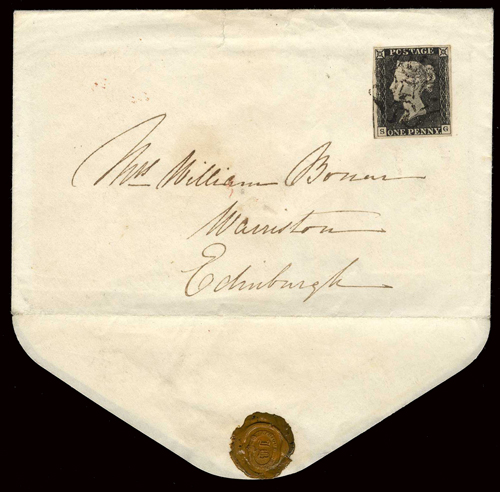 POSTAGE
S G
ONE PENNY
Mrs William Bonar
Warriston
Edinburgh